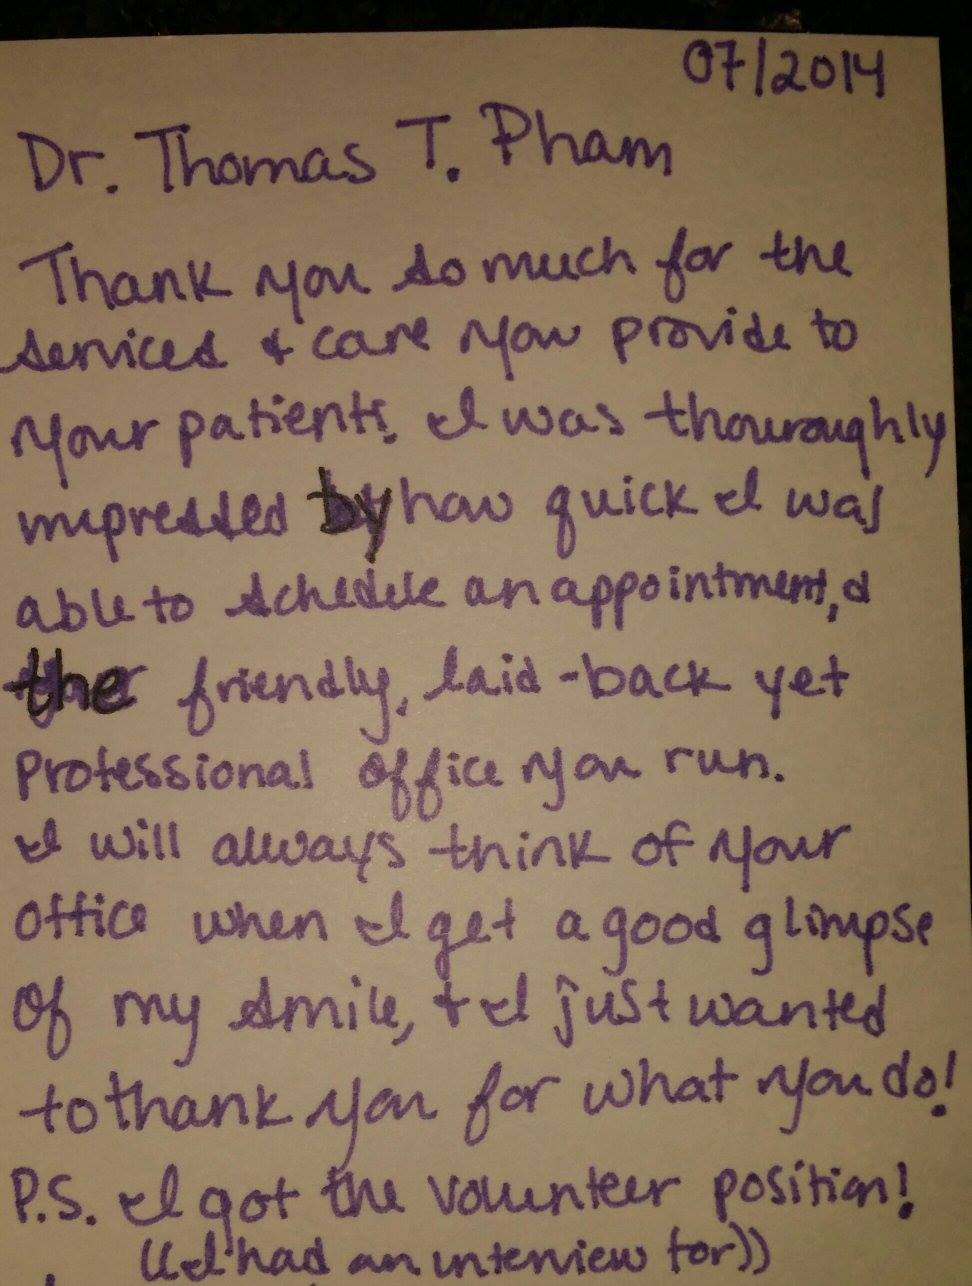 07/2014
Dr. Thomas T. Pham
Thank you so much for the
services & care you provide to
your patients. I was thouroughly
impressed by how quick I was
able to schedele an appointment, &
the friendly, laid-back yet
professional office you run.
I will always think of your
office when I get a good glimpse
of my smile, & I just wanted
to thank you for what you do!
P.S. I got the volunteer position!
((I had an interview for))